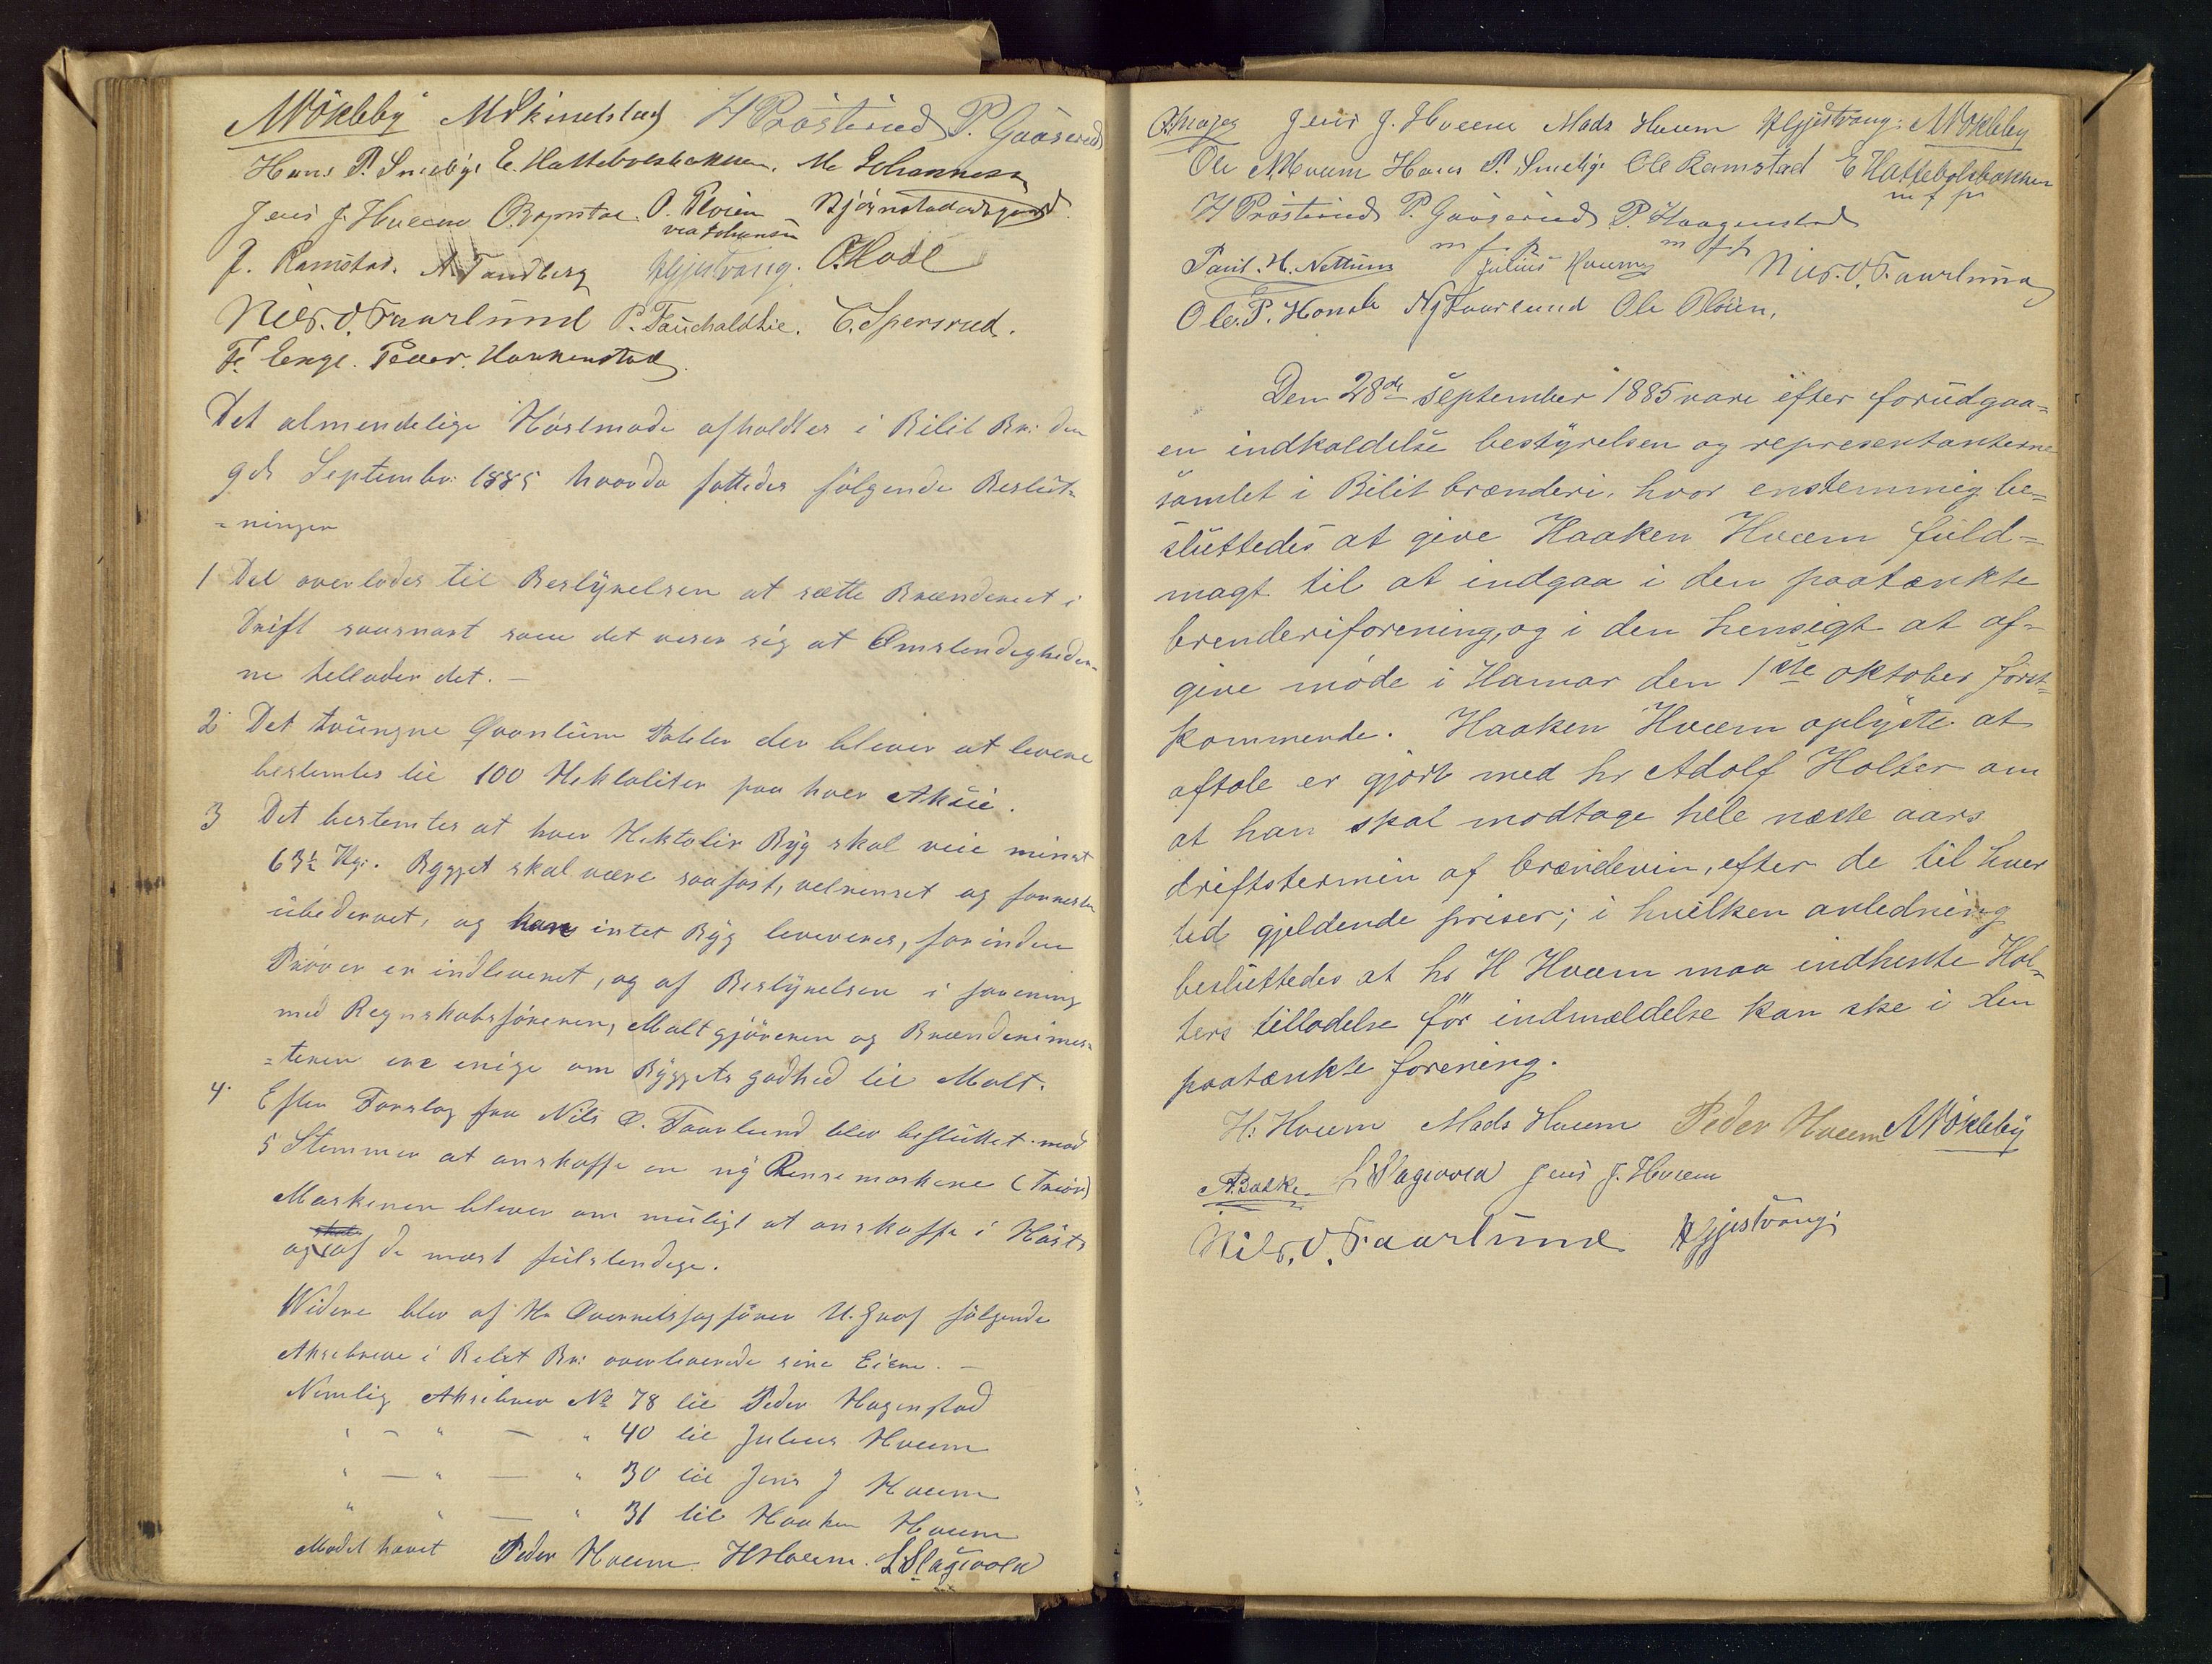 MØkleby M Skinnstad H Pröstrud P. Gaaserud
Hans P. Smeby E. Hattebolsbakken. M. Johannesen
Jens J. Hveem O. O. Ploien Bjørnstadødegaard.
ved Johansen
J. Ramstad. A. Tandberg HGjestvang. O. Hoel
Nils. O. Faarlund P. Fauchaldlie. C. Spersrud.
F. Enge. Peder. Honkenstad
Det almendelige Høstmøde afholdtes i Bilit Br: den
9de September 1885 hvorda fattedes følgende Beslüt-
=ninger
1 Det overlodes til Bestÿrelsen at sætte Brænderiet i
Drift saasnart som det viser sig at Omstendigheder-
ne tellader det. —
2 Det tvüngne Qvantüm Poteter der bliver at levere
bestemtes til 100 Hektoliter paa hver Aksie.
3 Det bestemtes at hver Hektoliter Bÿg skal veie minst
63½ Kg. Bygget skal være saafast, velrenset og forresten
übedervet, og kan intet Bÿg leveveres, forinden
Prøver er indleveret, og af Bestÿrelsen i forening
med Regnskabsføreren, Maltgjøreren og Brænderimes-
=teren ere enige om Bÿggets godhed til Malt.
4. Efter Forslag fra Nils O. Faarlund blev beslüttet mod
5 Stemmer at anskaffe en nÿ Rensemaskine (Triør)
Maskinen bliver om müligt at anskaffe i Høst
og af de mest fülstendige.
Widere blev af Hr Overretssagfører U. Graf følgende
Aksebreve i Bilit Br: overleverede sine Eiere. —
Nemlig Aksebrev No 78 til Peder Hagenstad
" — " — " 40 til Julius Hveem
" — " — " 30 til Jens J Hveem
" " — " 31 til Haaken Hveem
Mødet hævet Peder Hveem HHveem. L Slagsvold
Jens J. Hveem Mads Hveem HGjestvang. MØkleby
Ole N Hveem Hans P. Smeby Ole Ramstad E Hattebolsbakken
m f p
H Pröstrud P. Gaaserud P. Haagenstad
m f. p m f. p
Paul. H. Nettum Julius Hveem Nils. O. Faarlund
Ole. P. Honsti Faarlund Ole Ploien.
Den 28de september 1885 vare efter forudgaa=
en indkaldelse bestÿrelsen og representanterne
samlet i Bilit brænderi, hvor enstemmig be=
slüttedes at give Haaken Hveem füld=
magt til at indgaa i den paatænkte
brenderiforening, og i den hensigt at af=
give møde i Hamar den 1ste oktober först-
kommende. Haaken Hveem oplÿste at
aftale er gjort med hr Adolf Holter om
at han skal modtage hele næste aars
driftstermin af brændevin, efter de til hver
tid gjeldende priser; i hvilken anledning
beslüttedes at hr H Hveem maa indhente Hol-
ters tilladelse før indmældelse kan ske i den
paatænkte forening.
H. Hveem Mads Hveem Peder Hveem MØkleby
A. Bakke L Slagsvold Jens J. Hveem
Nils. O. Faarlund HGjestvang.